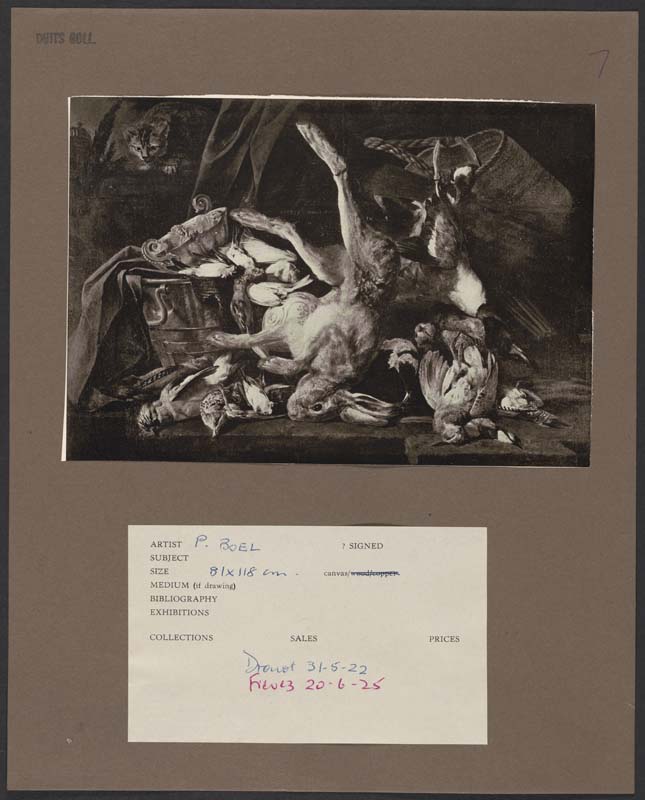 DUITS COLL.
7
ARTIST P. BOEL ? SIGNED
SUBJECT
SIZE 81 x 118 cm. canvas/wood/copper.
MEDIUM (if drawing)
BIBLIOGRAPHY
EXHIBITIONS
COLLECTIONS SALES PRICES
Drouot 31-5-22
Fievez 20-6-25